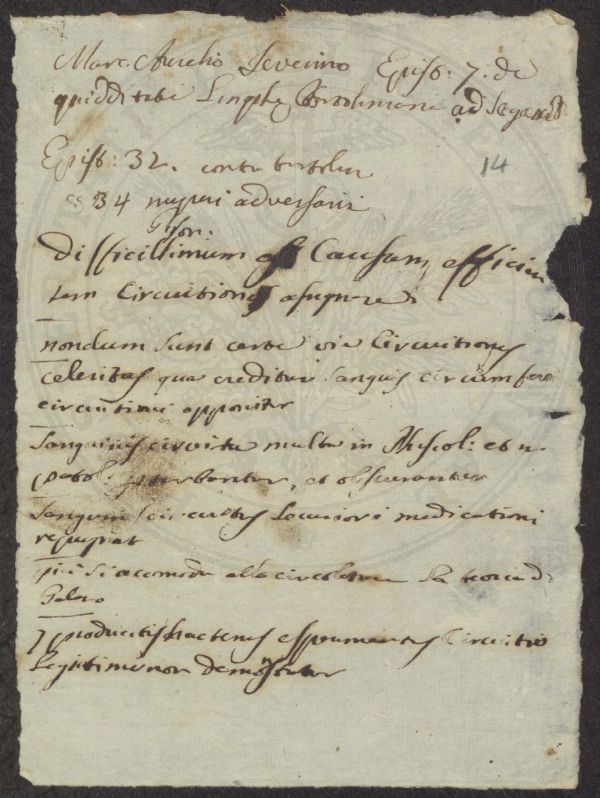 Marc. Aurelio Severino Epist: 7. de
quidditate Lymphae Bartholiniana ad Segerum
Epist: 32. contra bartolin
34 nuperi adversarii
difficillimum est Causam efficien
tem Circuitionis assignare
nondum sunt certae viae Circuitionis
Celeritas qua creditur sanguis circumferri
circuitioni opponitur
Sanguinis circuitu multa in Phisiol: et in
patol: perturbantur, et obscurantur
Sanguinis circuitus Saniori medicationi
repugnat
più si acomoda alla circolatione la teoria di
Galeno
productis hactenus esperimentis Circuitio
legitime non demonstratur
14